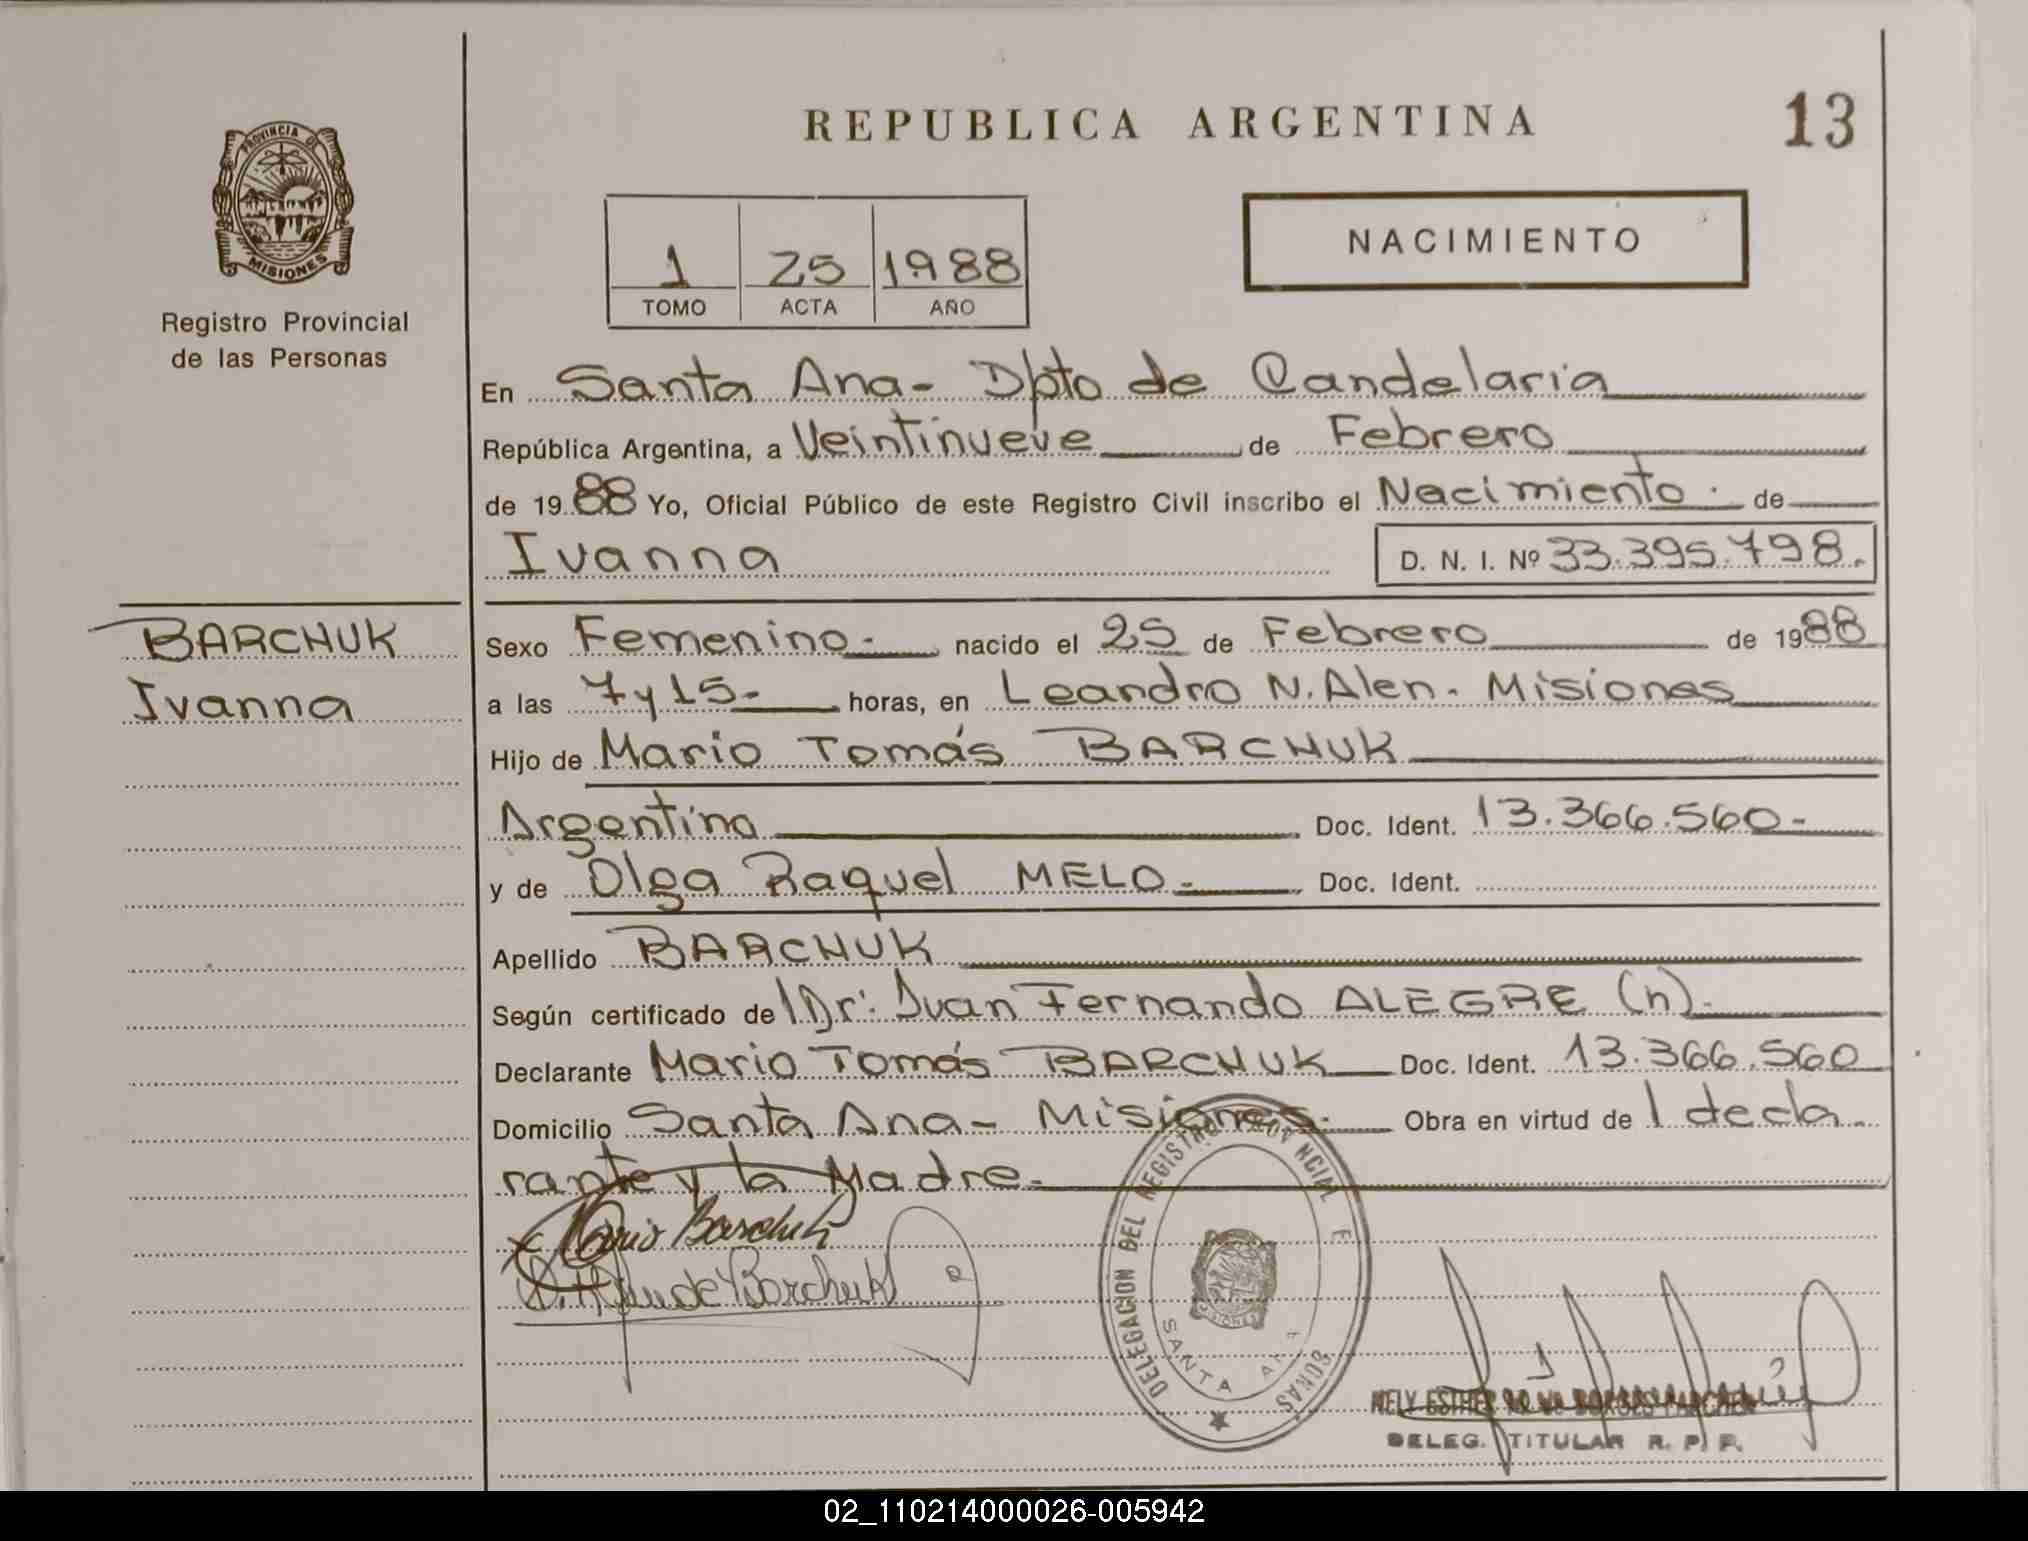 REPUBLICA ARGENTINA
13
PROVINCIA DE
MISIONES
Registro Provincial
de las Personas
1 25 1988
TOMO ACTA AÑO
NACIMIENTO
En Santa Ana- Dpto de Candelaria
República Argentina, a Veintinueve de Febrero
de 1988 Yo, Oficial Público de este Registro Civil inscribo el Nacimiento. de
Ivanna D. N. I. Nº 33.395.798.
BARCHUK
Ivanna
Sexo Femenino.- nacido el 25 de Febrero de 1988
a las 7 y 15- horas, en Leandro N. Alen. Misiones
Hijo de Mario Tomás BARCHUK
Argentino Doc. Ident. 13.366.560-
y de Olga Raquel MELO.- Doc. Ident.
Apellido BARCHUK
Según certificado de l Dr: Juan Fernando ALEGRE (h).
Declarante Mario Tomás BARCHUK Doc. Ident. 13.366.560
Domicilio Santa Ana- Misiones.- Obra en virtud de l decla-
rante y la Madre.-
Mario Barchuk
de Barchuk
DELEGACION DEL REGISTRO PROVINCIAL
SANTA ANA
MISIONES
NELY ESTHER
DELEG. TITULAR R. P. P.
02_110214000026-005942